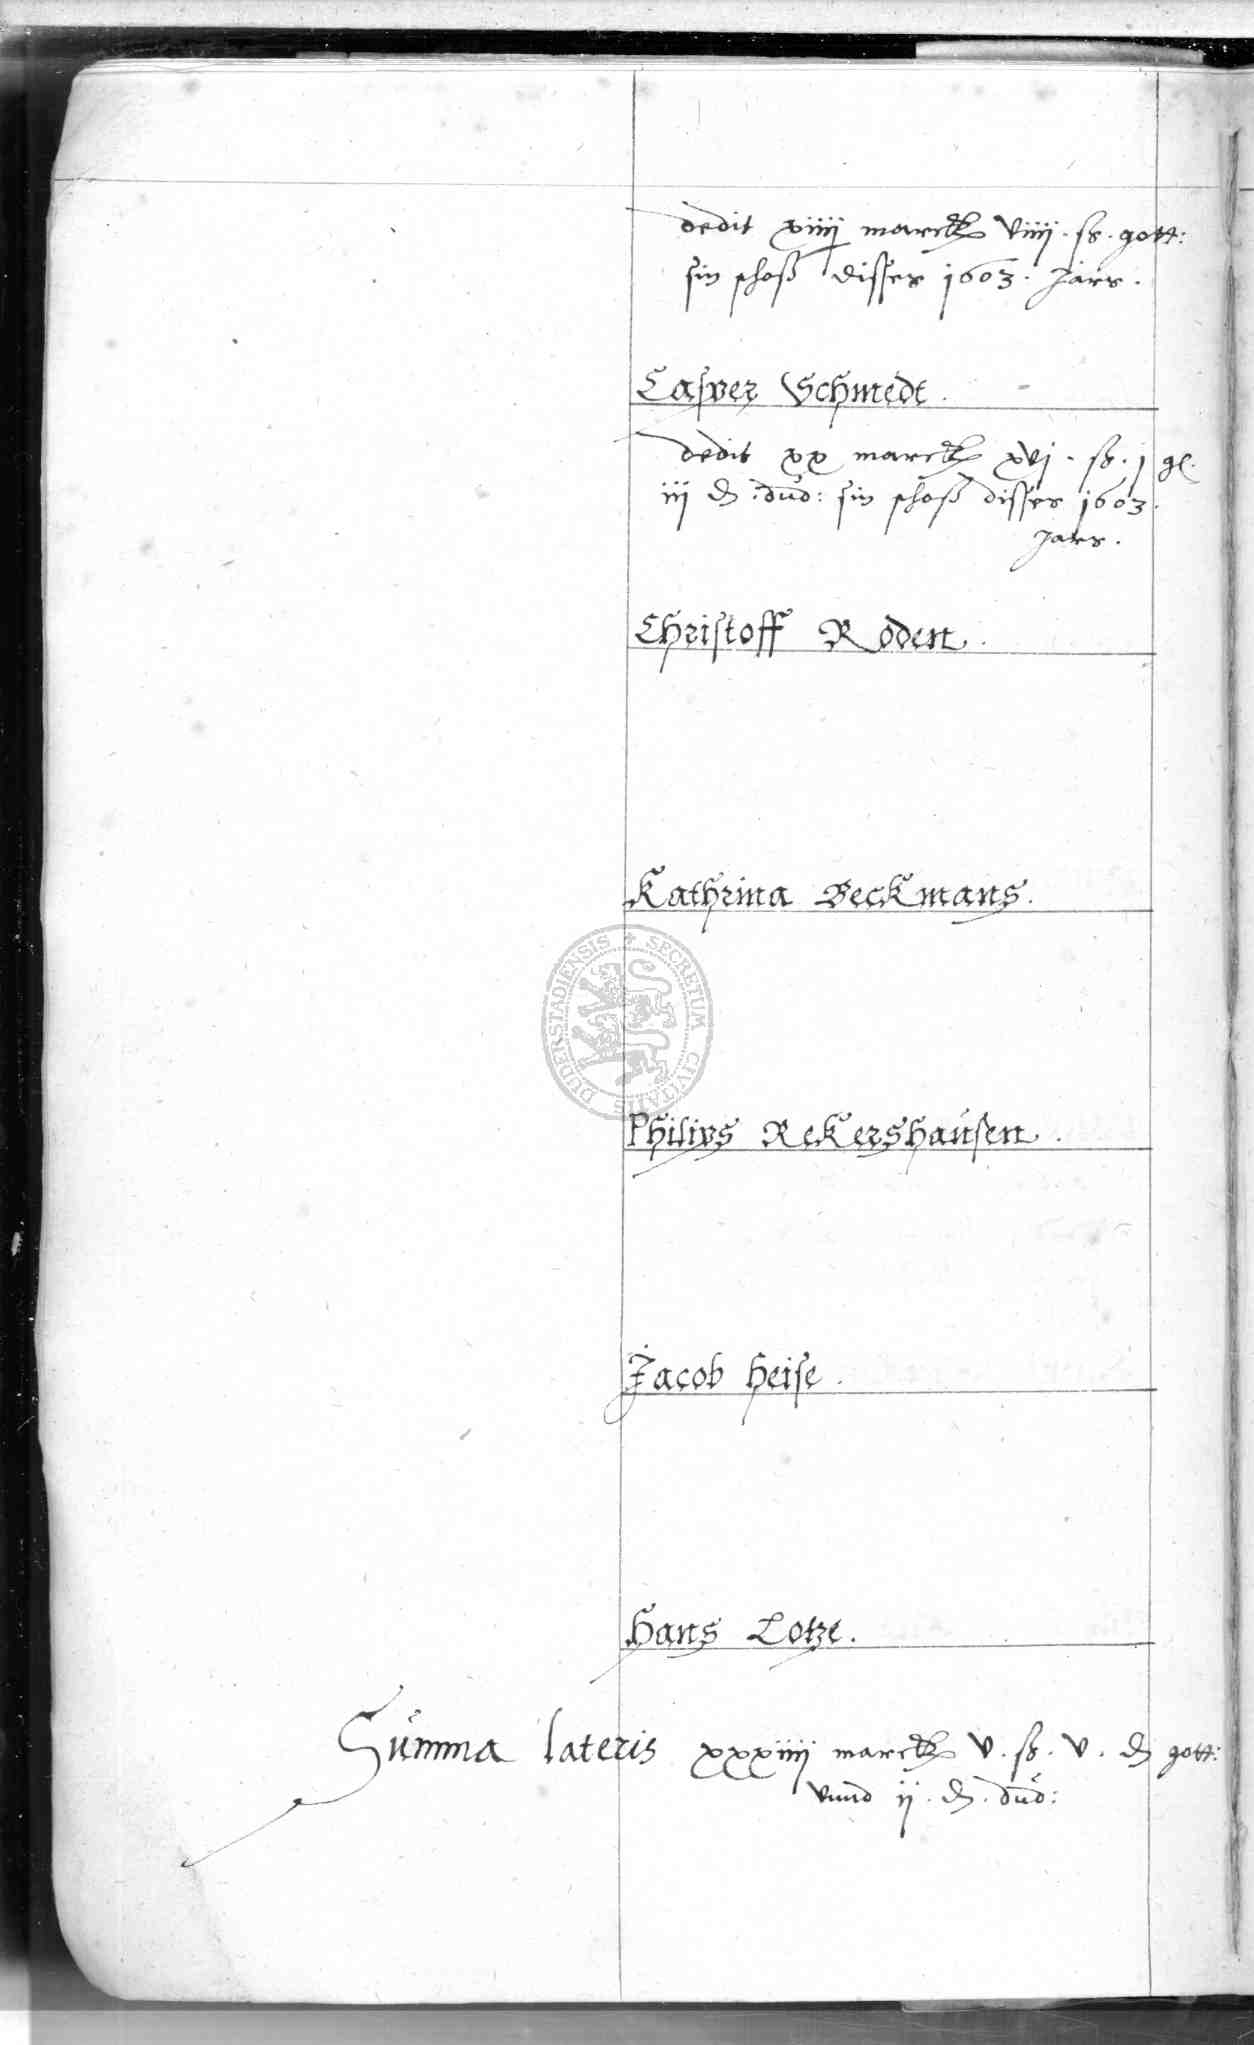 dedit xiiij marck viiij. ß. gott:
sin schoß disses 1603. Jars.
Casper Schmedt.
dedit xx marck xvj. ß. j gl.
iij ₰ :dud: sin schoß disses 1603.
Jars.
Christoff Roden.
Kathrina Beckmans.
DUDERSTADIENSIS + SECRETUM CIVITATIS
Philips Rekershausen.
Jacob Heise.
Hans Lotze.
Summa lateris xxxiiij marck v. ß. v. ₰ gott:
vnnd ij. ₰. dud: